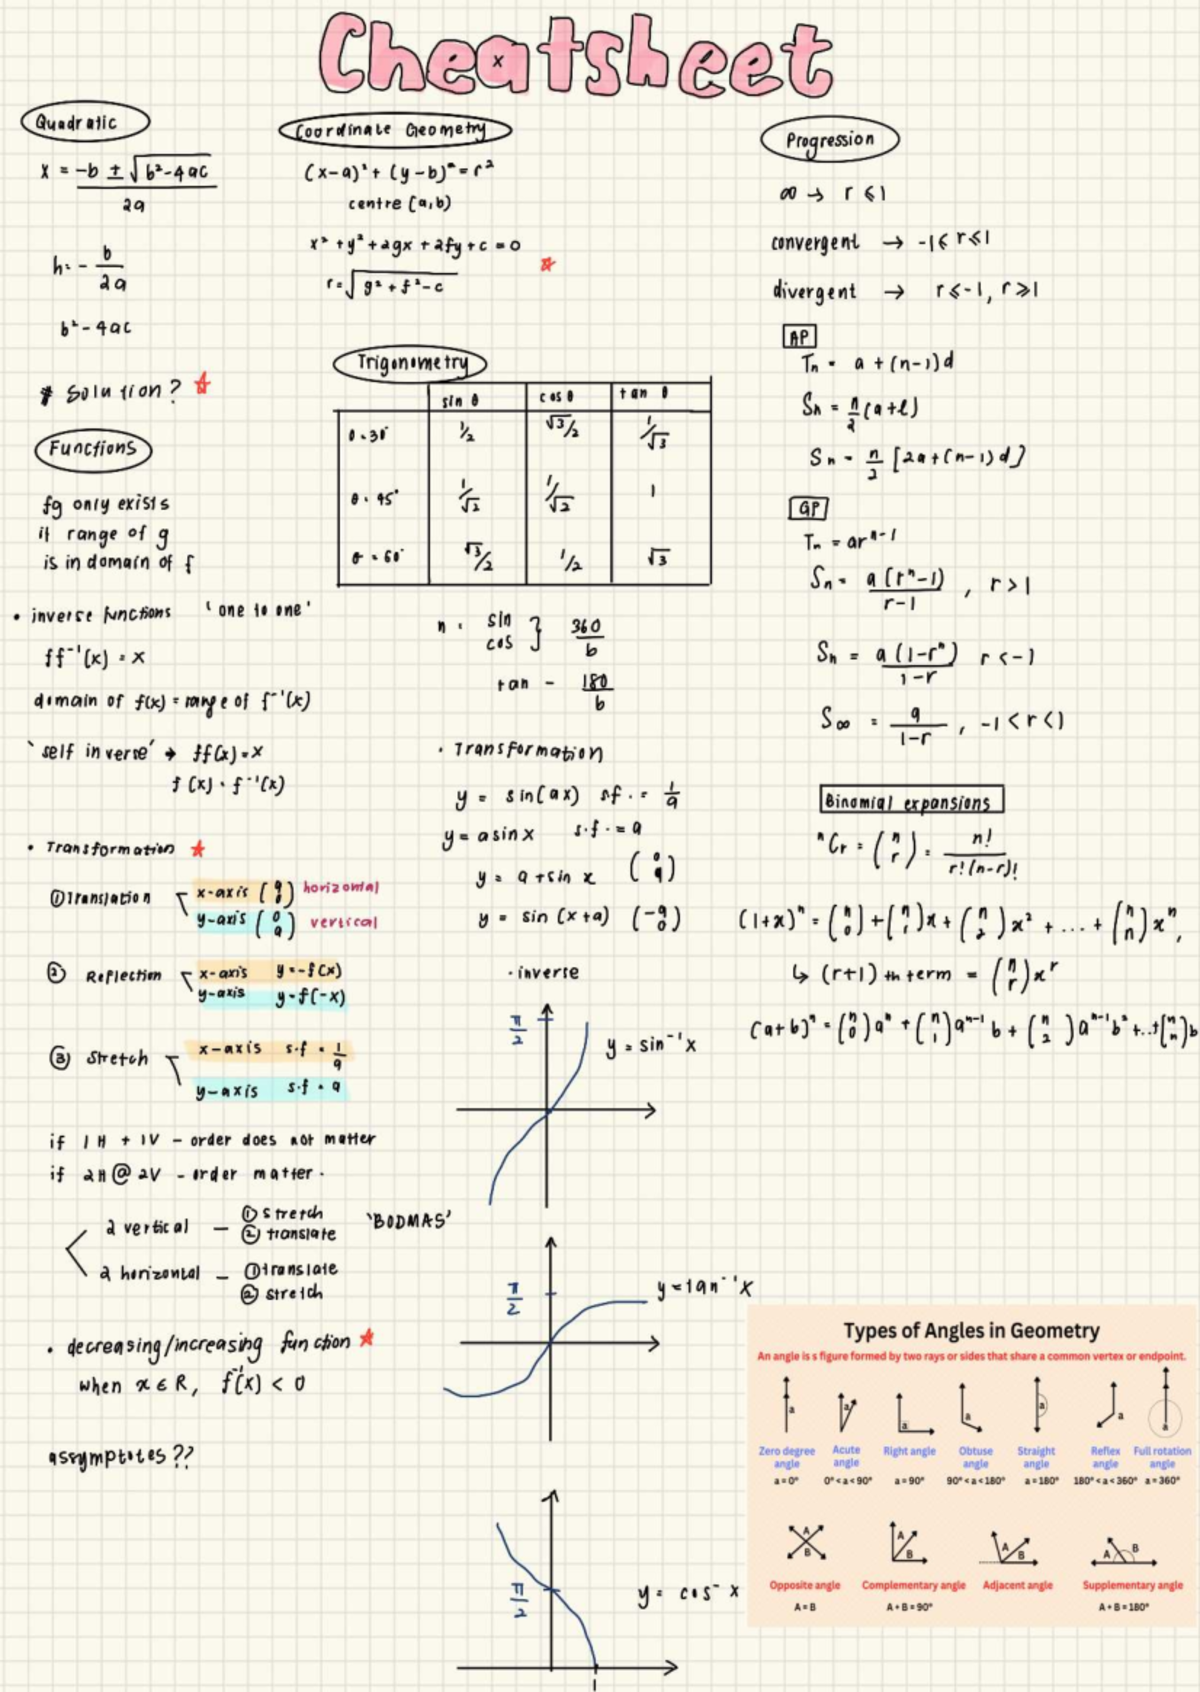 Cheatsheet
x
Quadratic
x = -b ± √b²-4ac
2a
h = - b
2a
b² - 4ac
# Solution? ☆
Functions
fg only exists
if range of g
is in domain of f
• inverse functions 'one to one'
ff⁻¹(x) = x
domain of f(x) = range of f⁻¹(x)
'self inverse' → ff(x) = x
f(x) = f⁻¹(x)
• Transformation ★
① Translation x-axis (a 0) horizontal
y-axis (0 a) vertical
② Reflection x-axis y = -f(x)
y-axis y = f(-x)
③ Stretch x-axis s.f = 1/a
y-axis s.f = a
if 1H + 1V - order does not matter
if 2H @ 2V - order matter.
2 vertical - ① stretch 'BODMAS'
② translate
2 horizontal - ① translate
② stretch
• decreasing/increasing function ★
when x ∈ R, f⁻¹(x) < 0
assymptotes??
Coordinate Geometry
(x-a)² + (y-b)² = r²
centre (a,b)
x² + y² + 2gx + 2fy + c = 0
r = √g² + f² - c ☆
Trigonometry
sin θ cos θ tan θ
θ = 30° 1/2 √3/2 1/√3
θ = 45° 1/√2 1/√2 1
θ = 60° √3/2 1/2 √3
n = sin cos } 360
b
tan - 180
b
• Transformation
y = sin(ax) s.f. = 1/a
y = a sin x s.f. = a
y = a + sin x (0 a)
y = sin (x+a) (-a 0)
• inverse
π/2
y = sin⁻¹x
π/2
y = tan⁻¹x
π/2
y = cos⁻ x
1
Progression
∞ → r ≤ 1
convergent → -1 ≤ r ≤ 1
divergent → r ≤ -1, r ≥ 1
AP
Tn = a + (n-1)d
Sn = n/2 (a+l)
Sn = n/2 [2a + (n-1)d]
GP
Tn = arⁿ⁻¹
Sn = a(rⁿ-1) , r > 1
r-1
Sn = a(1-rⁿ) r < -1
1-r
S∞ = a , -1 < r < 1
1-r
Binomial expansions
ⁿCr = (n r) = n!
r!(n-r)!
(1+x)ⁿ = (n 0) + (n 1)x + (n 2)x² + ... + (n n)xⁿ,
↳ (r+1)th term = (n r)xʳ
(a+b)ⁿ = (n 0)aⁿ + (n 1)aⁿ⁻¹b + (n 2)aⁿ⁻¹b² + ..+(n n)b
Types of Angles in Geometry
An angle is s figure formed by two rays or sides that share a common vertex or endpoint.
a a a a a a a
Zero degree angle Acute angle Right angle Obtuse angle Straight angle Reflex angle Full rotation angle
a = 0° 0° < a < 90° a = 90° 90° < a < 180° a = 180° 180° < a < 360° a = 360°
A B A B A B A B
Opposite angle Complementary angle Adjacent angle Supplementary angle
A = B A + B = 90° A + B = 180°